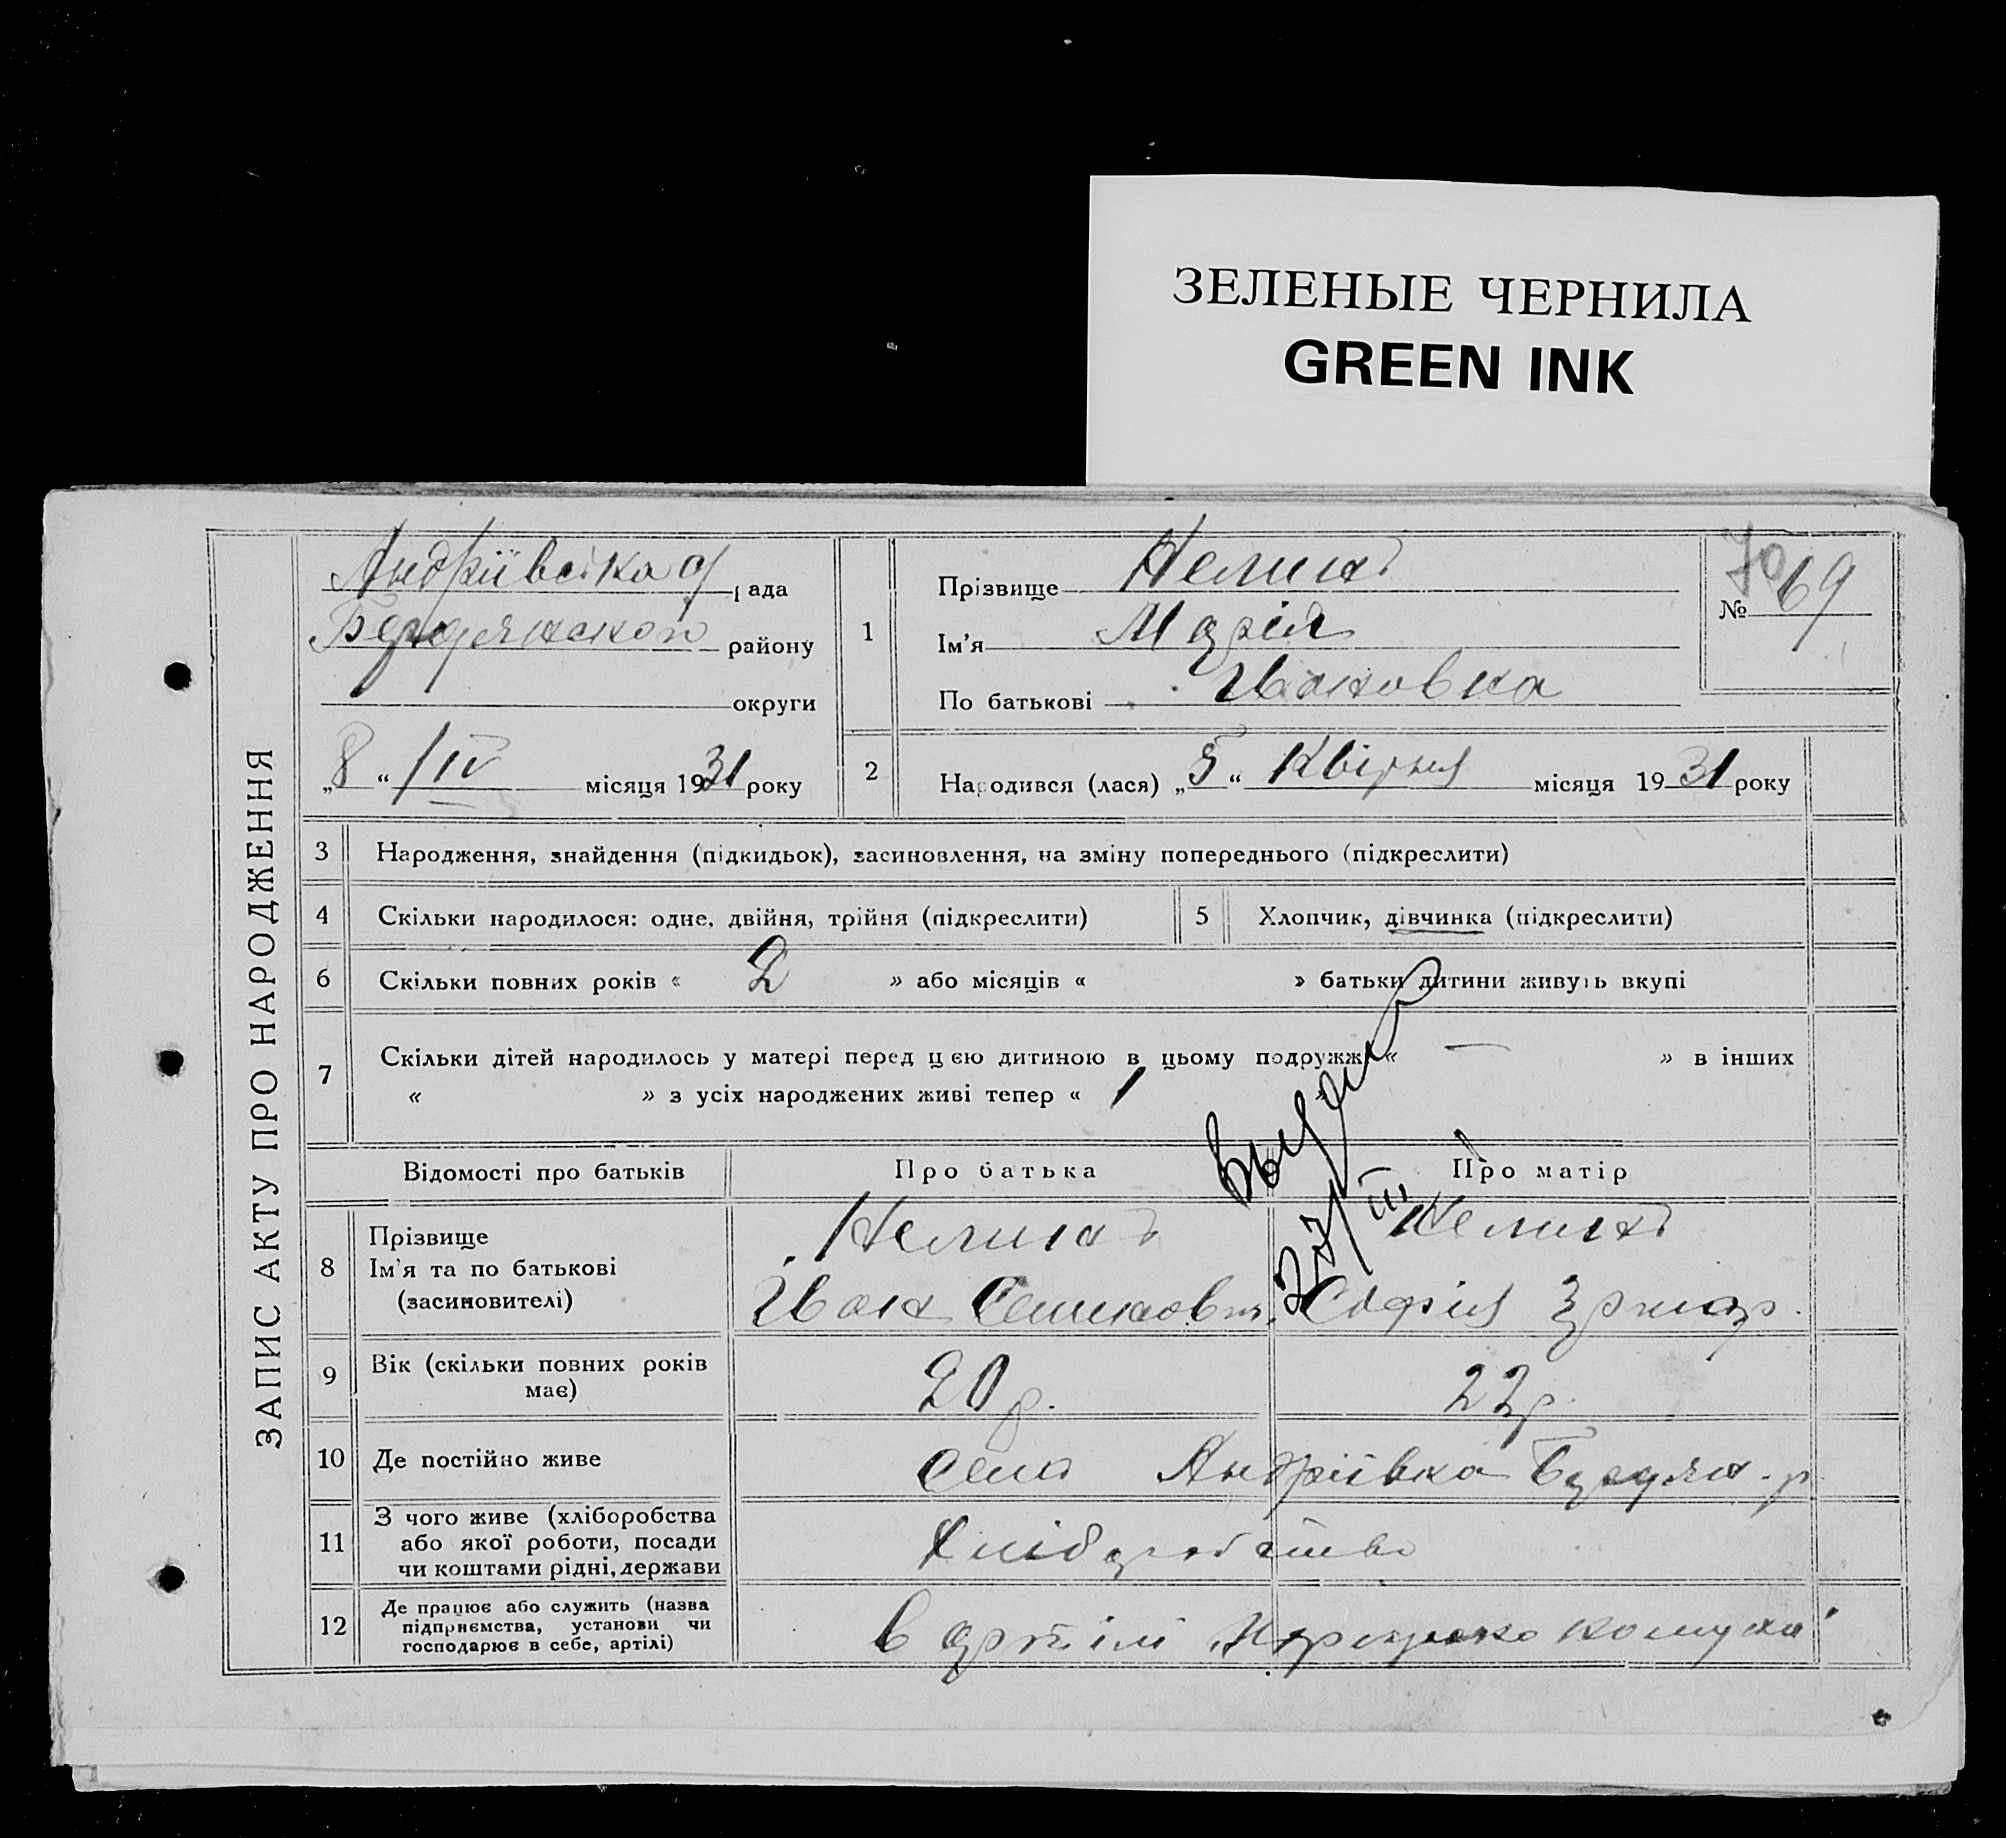 ЗЕЛЕНЫЕ ЧЕРНИЛА
GREEN INK
ЗАПИС АКТУ ПРО НАРОДЖЕННЯ
Андріївська рада
Бердянского району
округи
„8“ /IV місяця 1931 року
1
Прізвище
Ім'я Марія
По батькові Ивановна
70
№ 69
2
Народився (лася) „5“ Квітня місяця 1931 року
3 Народження, знайдення (підкидьок), засиновлення, на зміну попереднього (підкреслити)
4 Скільки народилося: одне, двійня, трійня (підкреслити)
5 Хлопчик, дівчинка (підкреслити)
6 Скільки повних років « 2 » або місяців « » батьки дитини живуть вкупі
7 Скільки дітей народилось у матері перед цією дитиною в цьому подружжі « — » в інших
« » з усіх народжених живі тепер « 1
Відомості про батьків
Про батька
Про матір
27/III
8
Прізвище
Ім'я та по батькові
(засиновителі)
Иван
Софія
9
Вік (скільки повних років
має)
20 р.
22 р.
10 Де постійно живе
село Андріївка Бердян. р.
11
З чого живе (хліборобства
або якої роботи, посади
чи коштами рідні, держави
Хліборобство
12
Де працює або служить (назва
підприємства, установи чи
господарює в себе, артілі)
в артілі